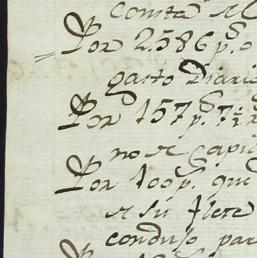 consta
Por 2.586 p.s o
gasto Diari
Por 157 p.s 7½ r
no de Capi
Por 100 p.s que
de su flete
condujo par